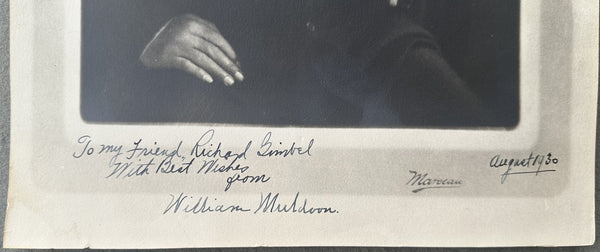 To my Friend, Richard Gimbel
With Best Wishes
from
William Muldoon.
Marceau
August 1930